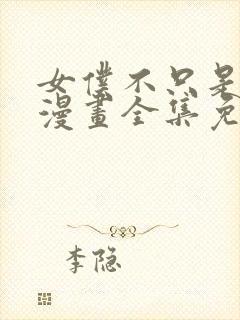 女僕不只是
漫畫全集免
李隐